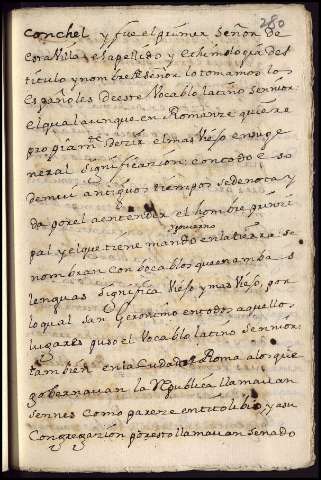 280
Conchel y fue el primer señor de
esta Villa, el apellido y ethimologia des
titulo y nombre de señor lo tomamos los
Españoles de este Vocablo latino sennior:
el qual aunque en Romanze quiere
propriam.te dezir el mas Viejo en su ge
neral significazion: con todo eso
de mui antiguos tiempos se denota y
da por el a entender el hombre prinzi
govierno
pal y el que tiene mando en la tierra se
nombran con bocablos que en ambas
lenguas significa Viejo y mas Viejo, por
lo qual San Geronimo en todos aquellos
lugares puso el Vocablo latino sennior:
tambien en la Ciudad de Roma a los que
gobernauan la Republica llamauan
sennes como pareze en tito libio y a su
Congregazion por esto llamauan senado